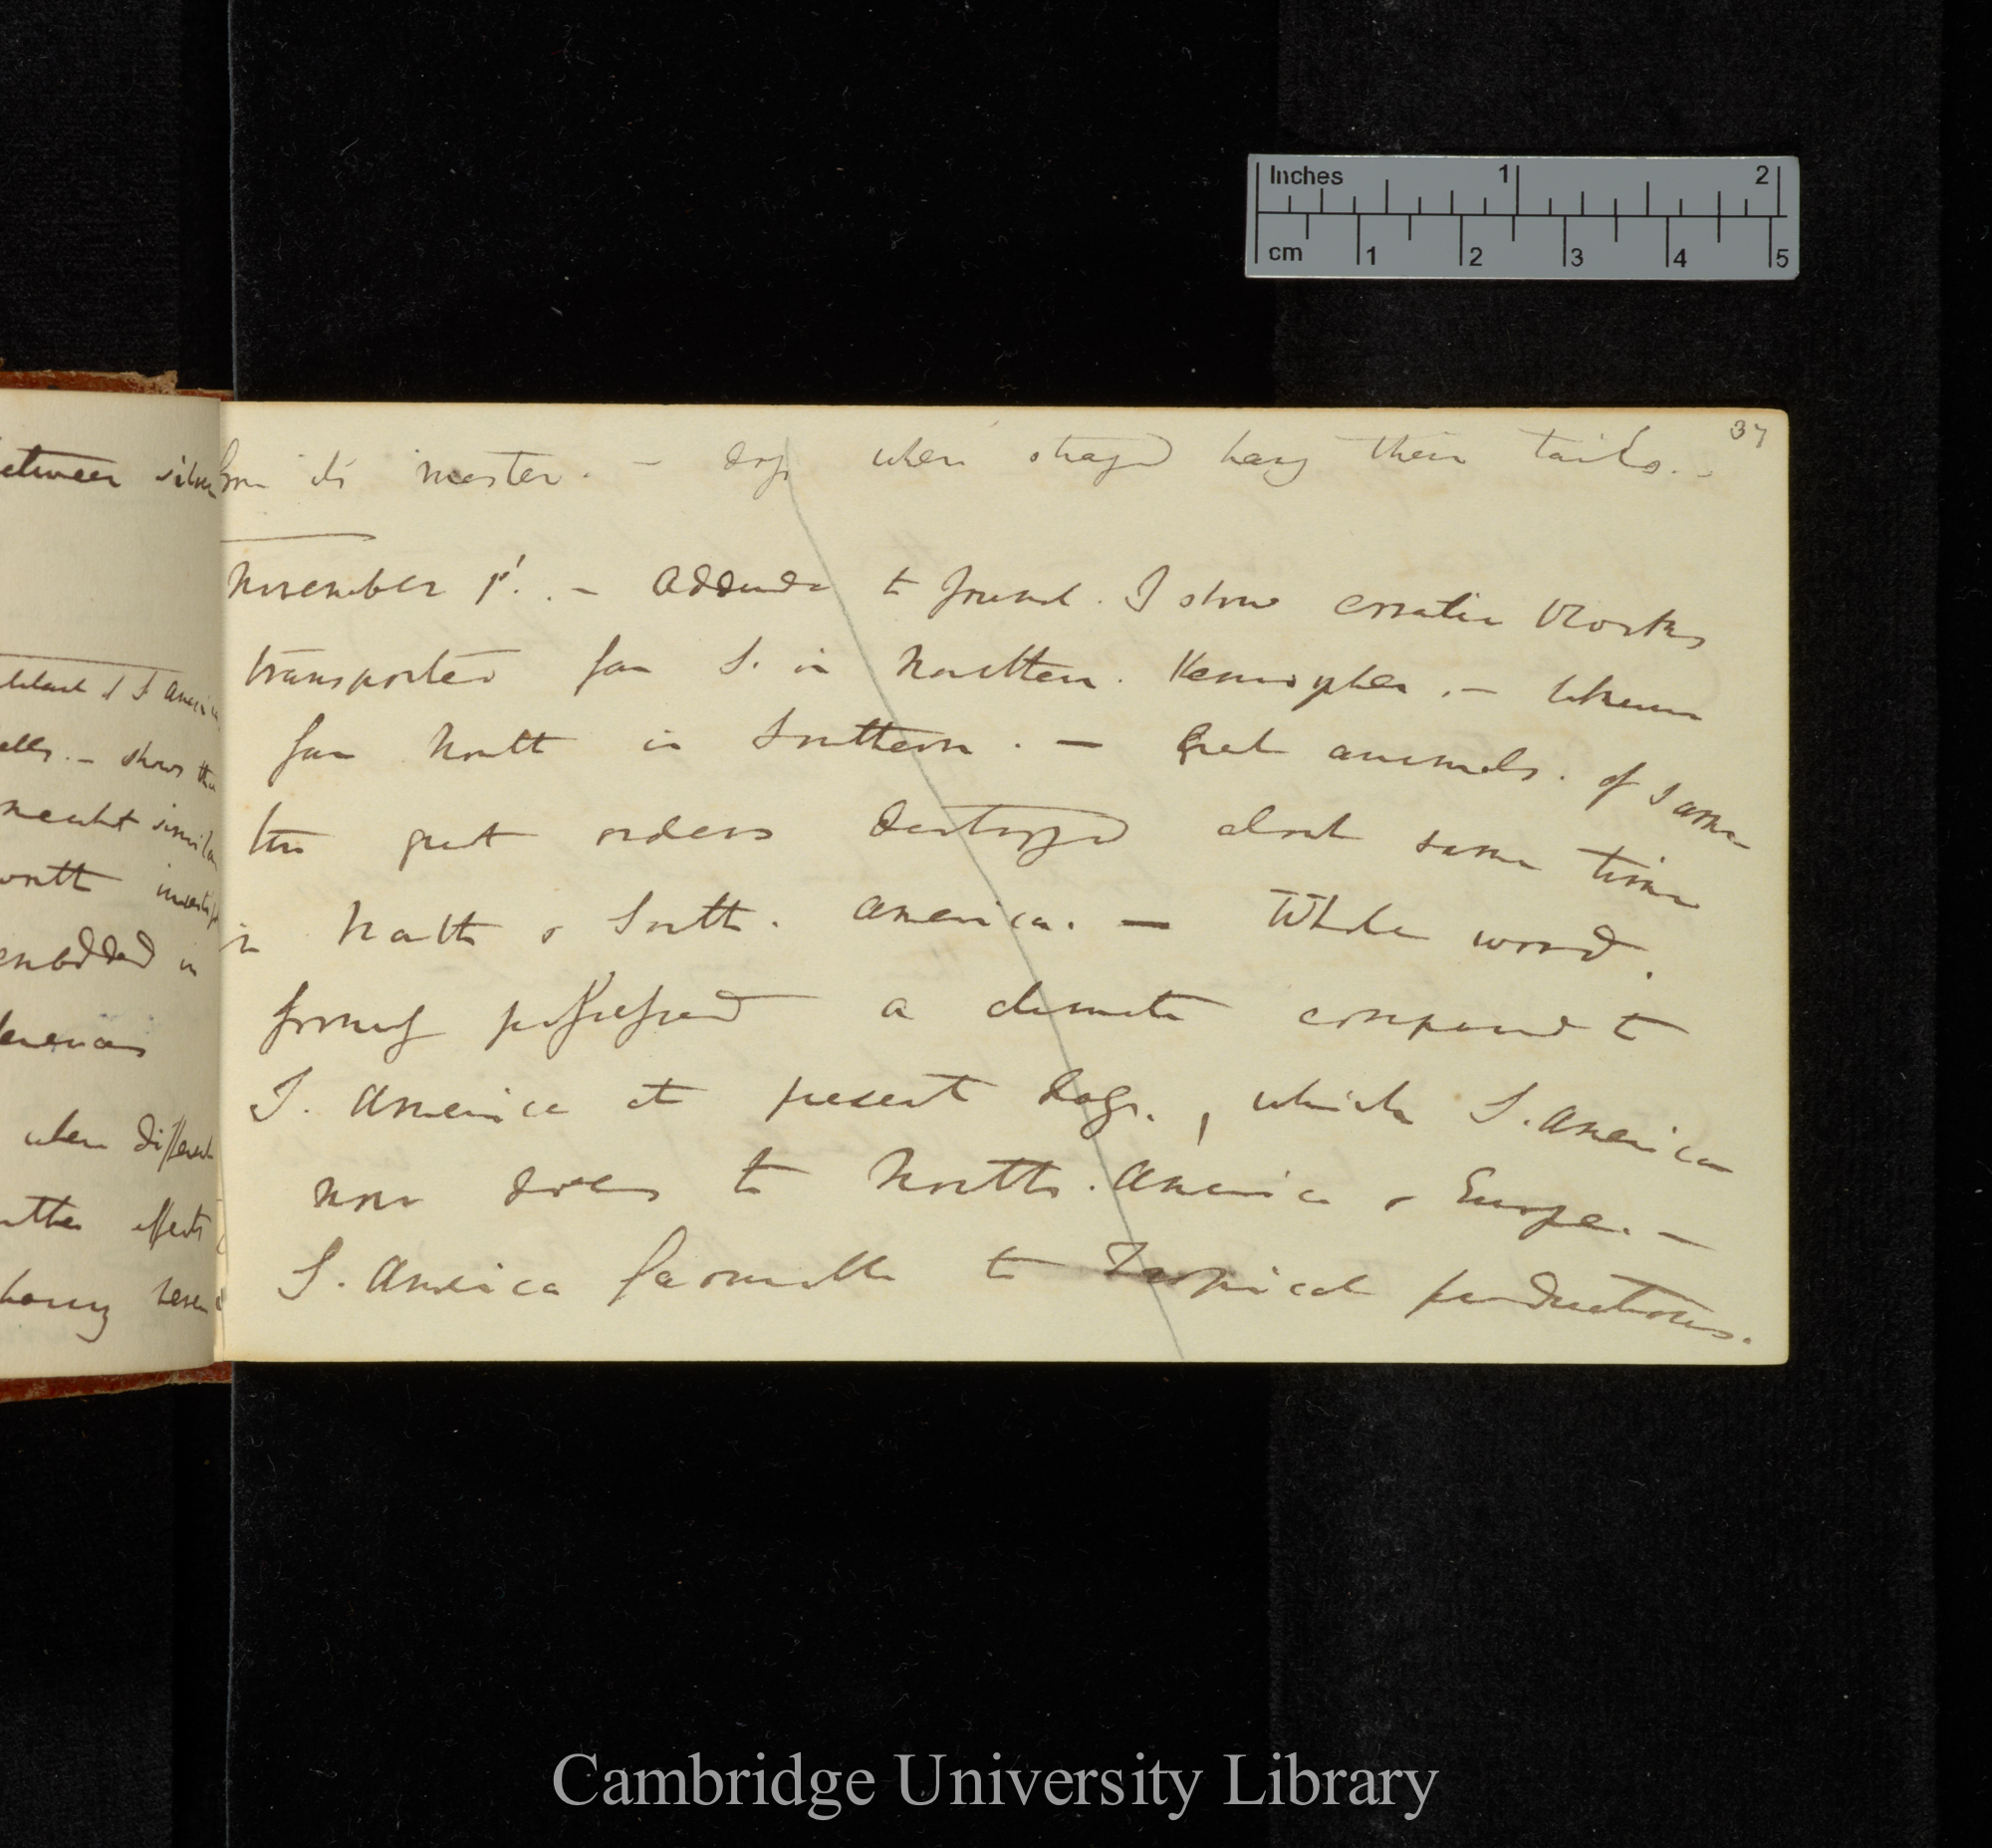 Inches 1 2
cm 1 2 3 4 5
37
etween silver
America
ells. — shows that
similar
worth
embedded in
when different
effects
from its master. — dogs when strayed hang their tails. —
November 1st. — Addenda to Journal. I show erratic blocks
transported far S. in Northern. Hemispher. — likewise
far North in Southern. — Great animals. of same
two great orders destroyed about same time
in North & South. America. — Whole world.
formerly possessed a climate compared to
S. America at present day., which S. America
now does to North. America & Europe. —
S. America favourable to Tropical productions.
Cambridge University Library